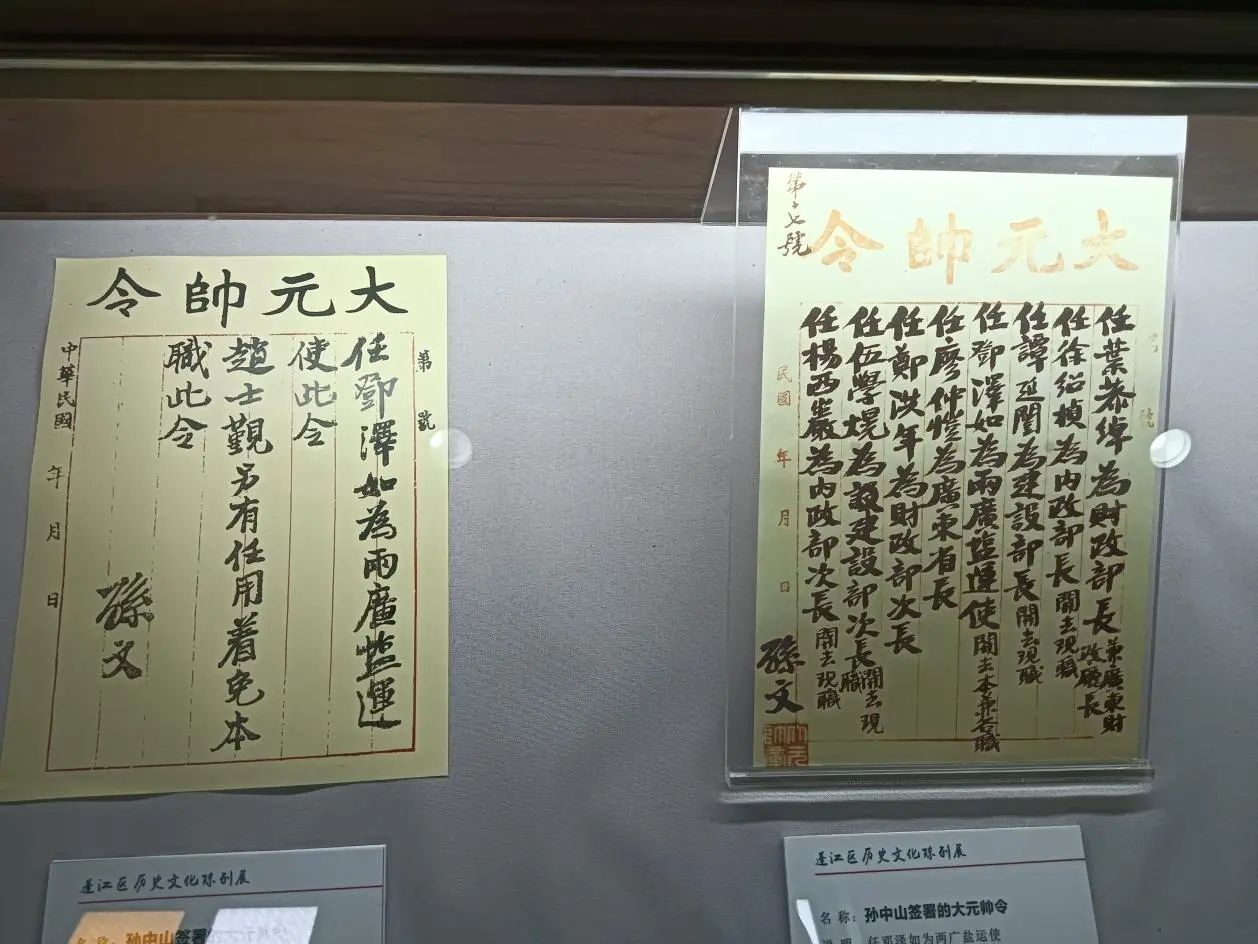 大元帥令
第 號
任鄧澤如為兩廣鹽運
使此令
趙士觀另有任用着免本
職此令
孫文
中華民國 年 月 日
第十七號
大元帥令
號
任葉恭綽為財政部長兼廣東財政廳長
任徐紹楨為內政部長開去現職
任譚延闓為建設部長開去現職
任鄧澤如為兩廣鹽運使開去本兼各職
任廖仲愷為廣東省長
任鄭洪年為財政部次長
任伍學熀為建設部次長開去現職
任楊西巖為內政部次長開去現職
孫文
民國 年 月 日
蓬江区历史文化陈列展
名称：孙中山签署
蓬江区历史文化陈列展
名称：孙中山签署的大元帅令
说明 任邓泽如为两广盐运使